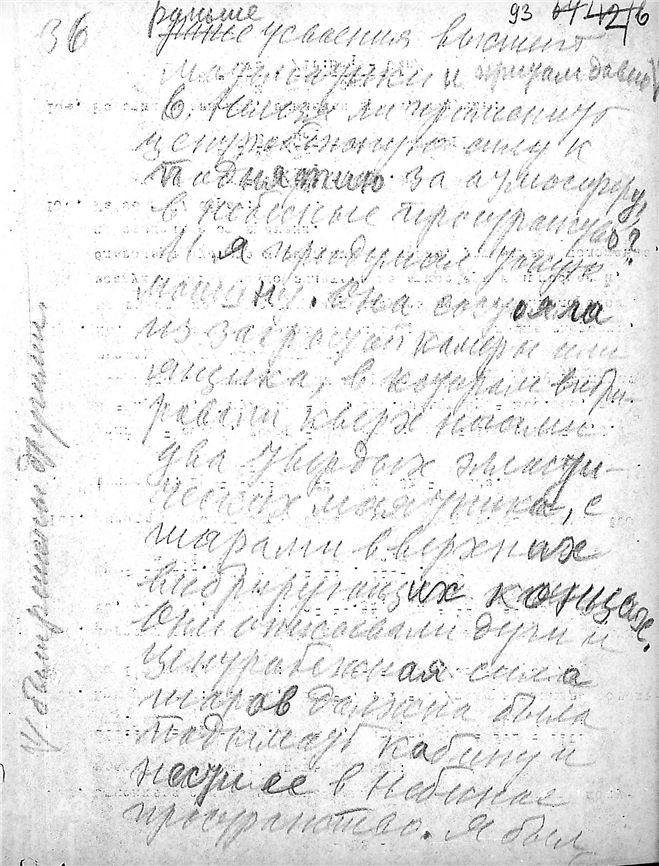 36
93
раньше
усвоения высшей
математики и притом давно
6. Нельзя ли применить
центробежную силу к
поднятию за атмосферу,
в небесные пространства?
И я придумал такую
машину. Она состояла
из закрытой камеры или
ящика, в котором вибри-
ровали кверх ногами
два твердых эласти-
ческих маятника, с
шарами в верхних
вибрирующих концах.
Они описывали дуги и
центробежная сила
шаров должна была
подымать кабину и
нести ее в небесное
пространство. Я был
V были решены другими.